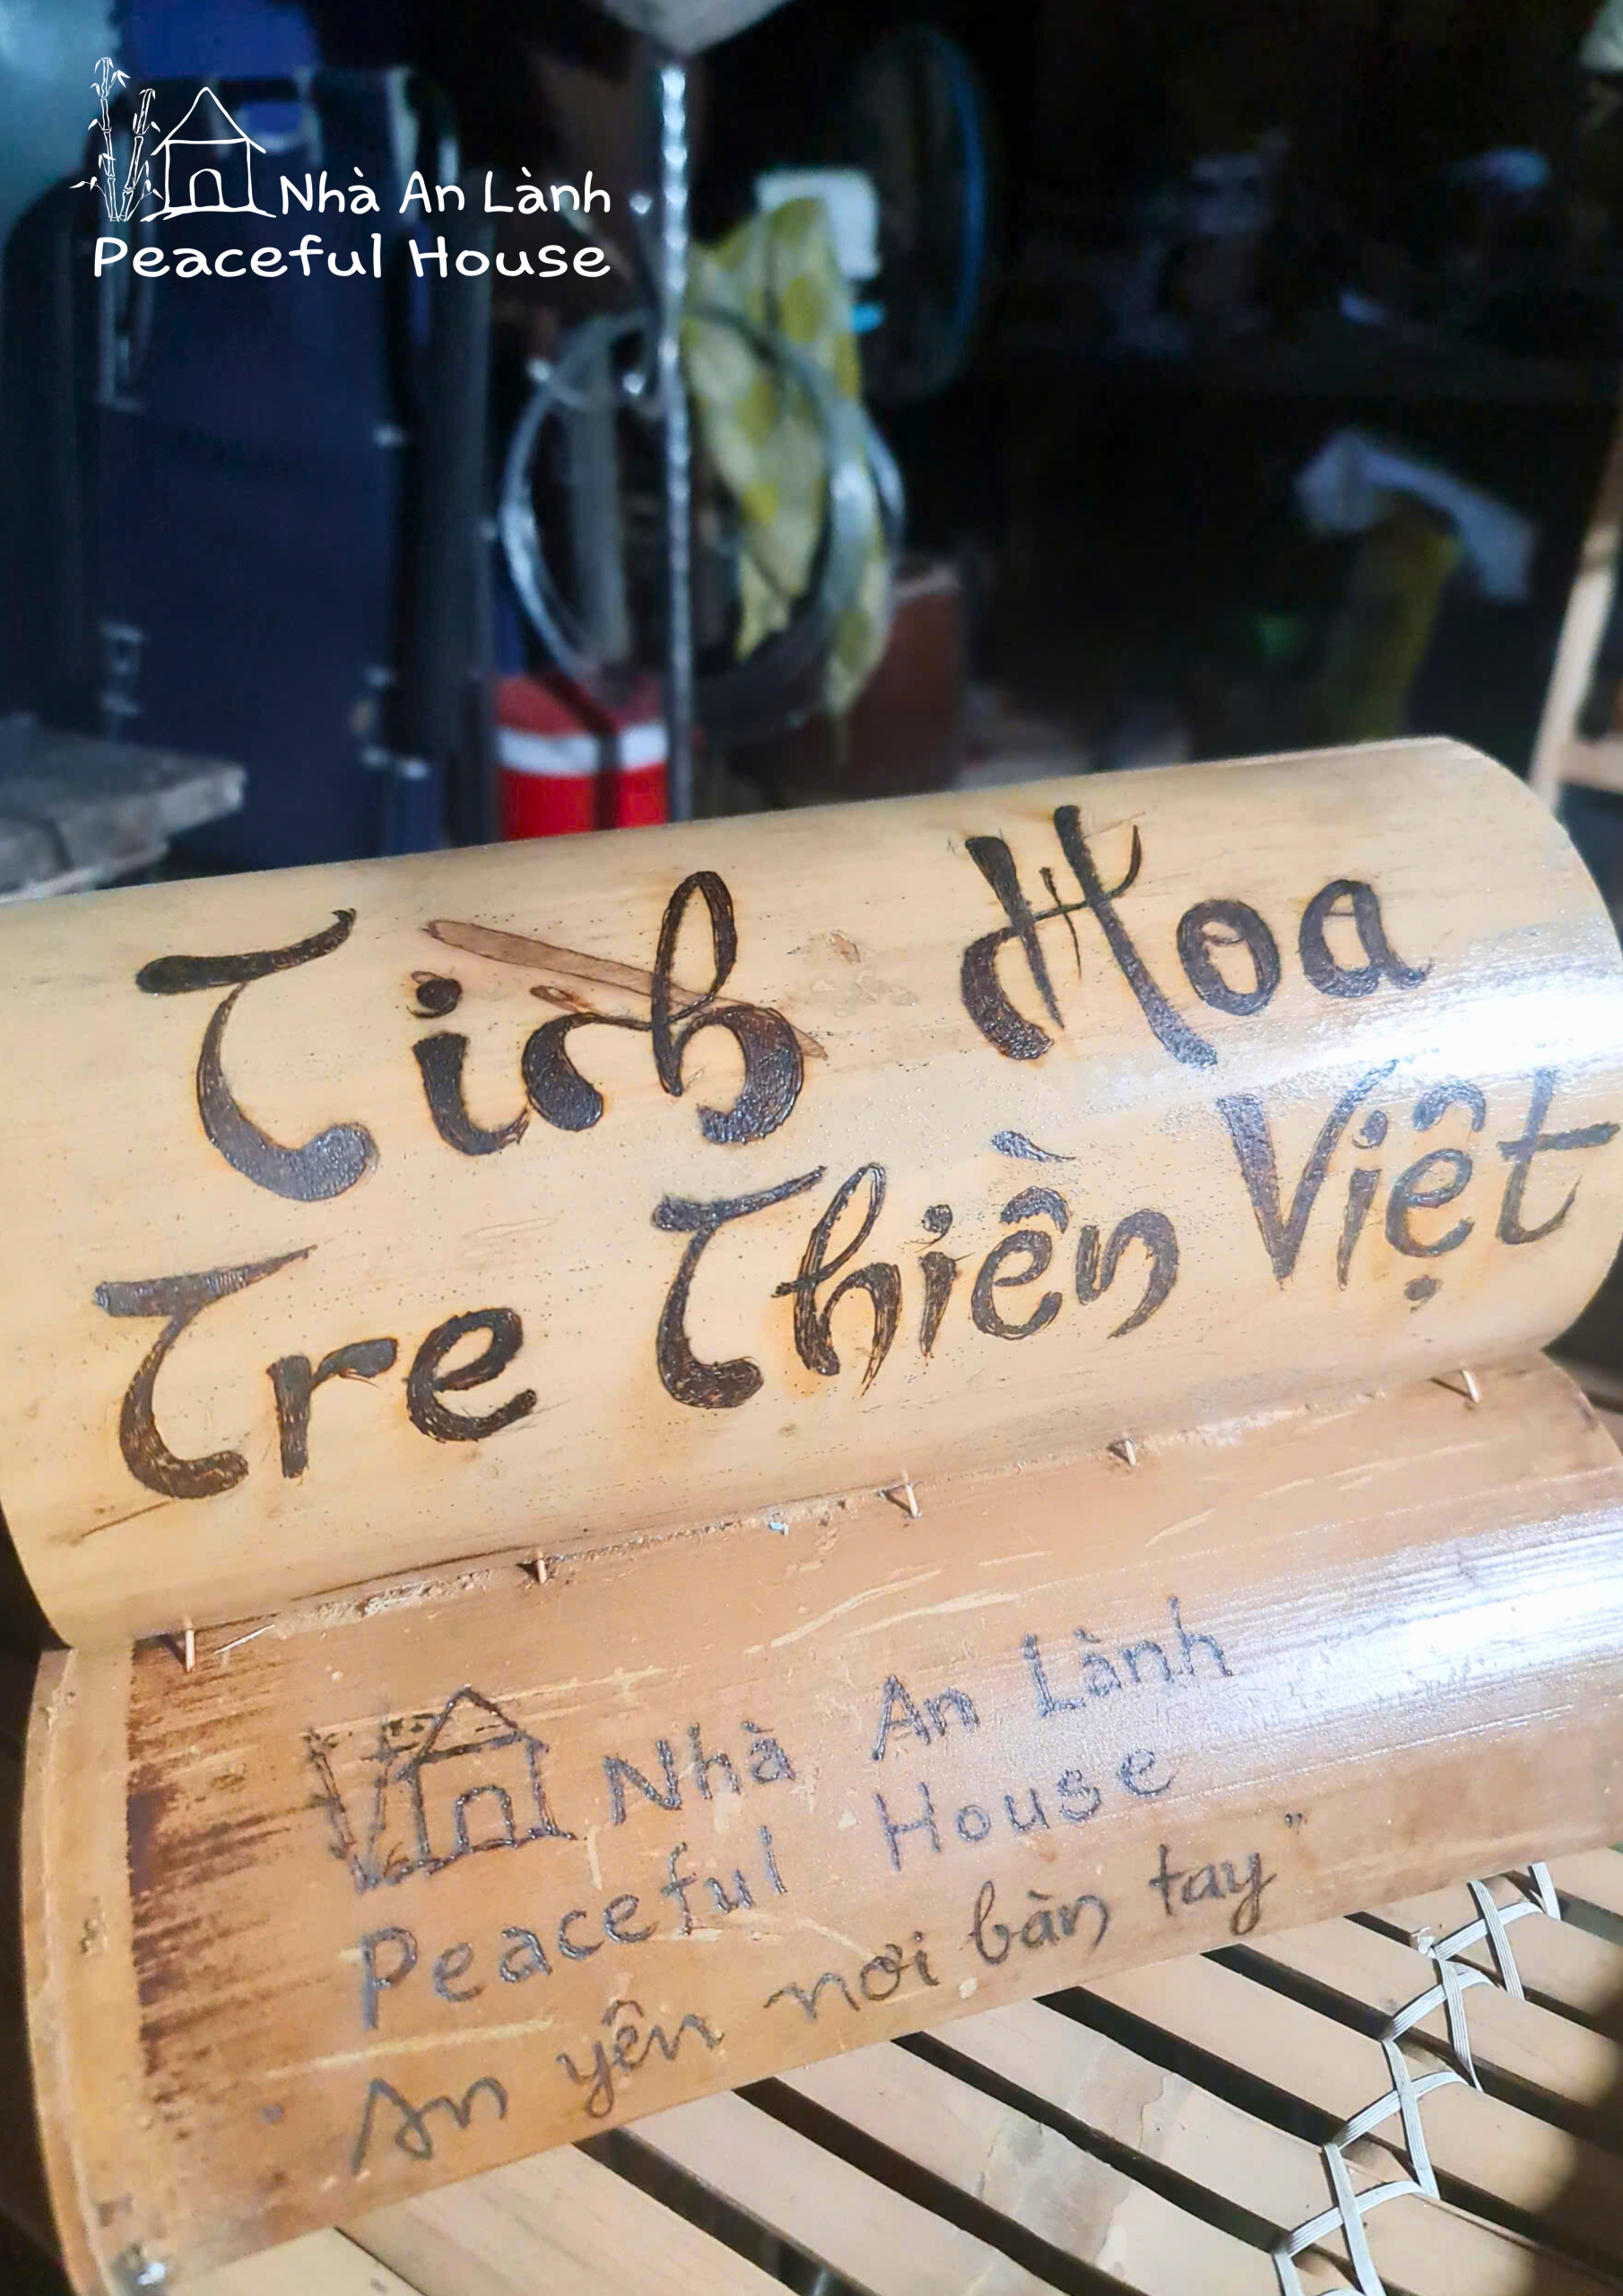 Nhà An Lành
Peaceful House
Tinh Hoa
Tre Thiền Việt
Nhà An Lành
Peaceful House
"An yên nơi bàn tay"